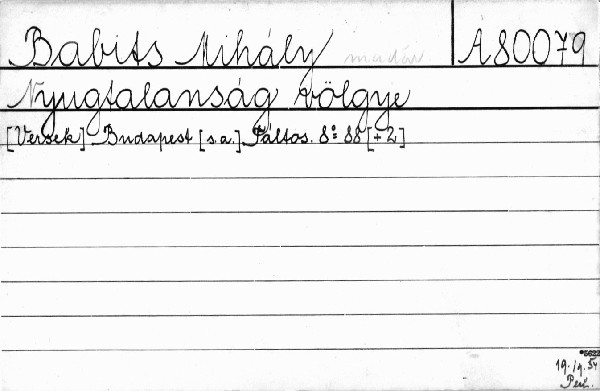 Babits Mihály madár A80079
Nyugtalanság völgye
[Versek] Budapest [s.a.] Táltos. 8° 88 [+2]
*5622
19./9. 54